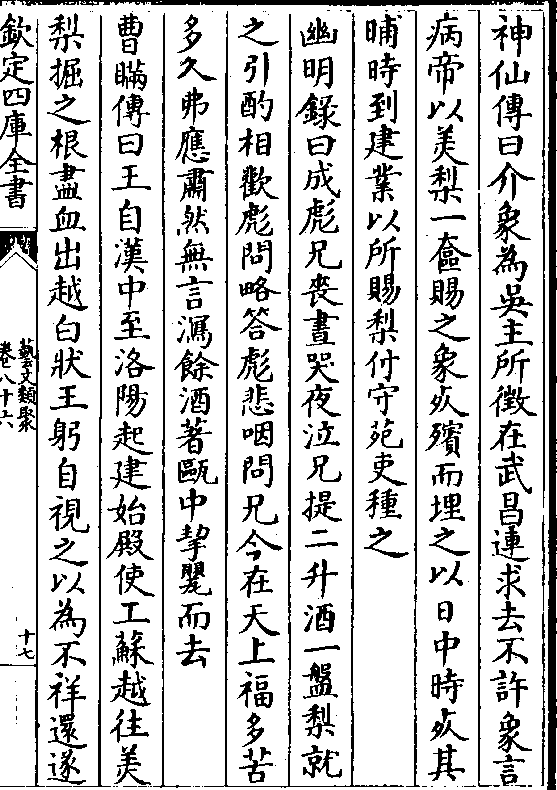 神仙傳曰介象為吳主所徴在武昌連求去不許象言
病帝以美梨一奩賜之象死殯而埋之以日中時死其
晡時到建業以所賜梨付守苑吏種之
幽明錄曰成彪兄喪晝哭夜泣兄提二升酒一盤梨就
之引酌相歡彪問略答彪悲咽問兄今在天上福多苦
多久弗應肅然無言瀉餘酒著甌中挈罌而去
曹瞞傳曰王自漢中至洛陽起建始殿使工蘇越往美
梨掘之根盡血出越白狀王躬自視之以為不祥還遂
欽定四庫全書
藝文類聚
卷八十六
十七